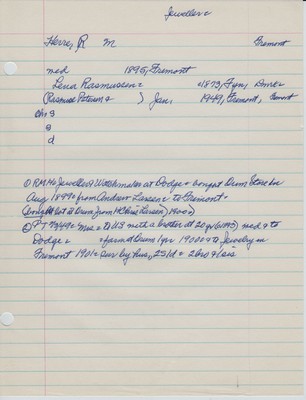 Jeweller
Herre, R M Fremont
med 1895, Fremont
Lena Rasmussen 1873, Fyn, Dmk
(Rasmus Petersen & ) Jan, 1949, Fremont, Fremont
ch, 3
s
d
① RMH Jeweller & Watchmaker at Dodge & bought Drum Store in
Aug 1899 from Andrew Larsen to Fremont
(bought lot at Drum from HChris Larsen) 1900)
② to US with a brother at 20 yr (1893) med & to
Dodge & farm at Drum 1 yr 1900 & to Jewelry in
Fremont 1901 Sur by hus, 2S1d & 2bro & 1sis